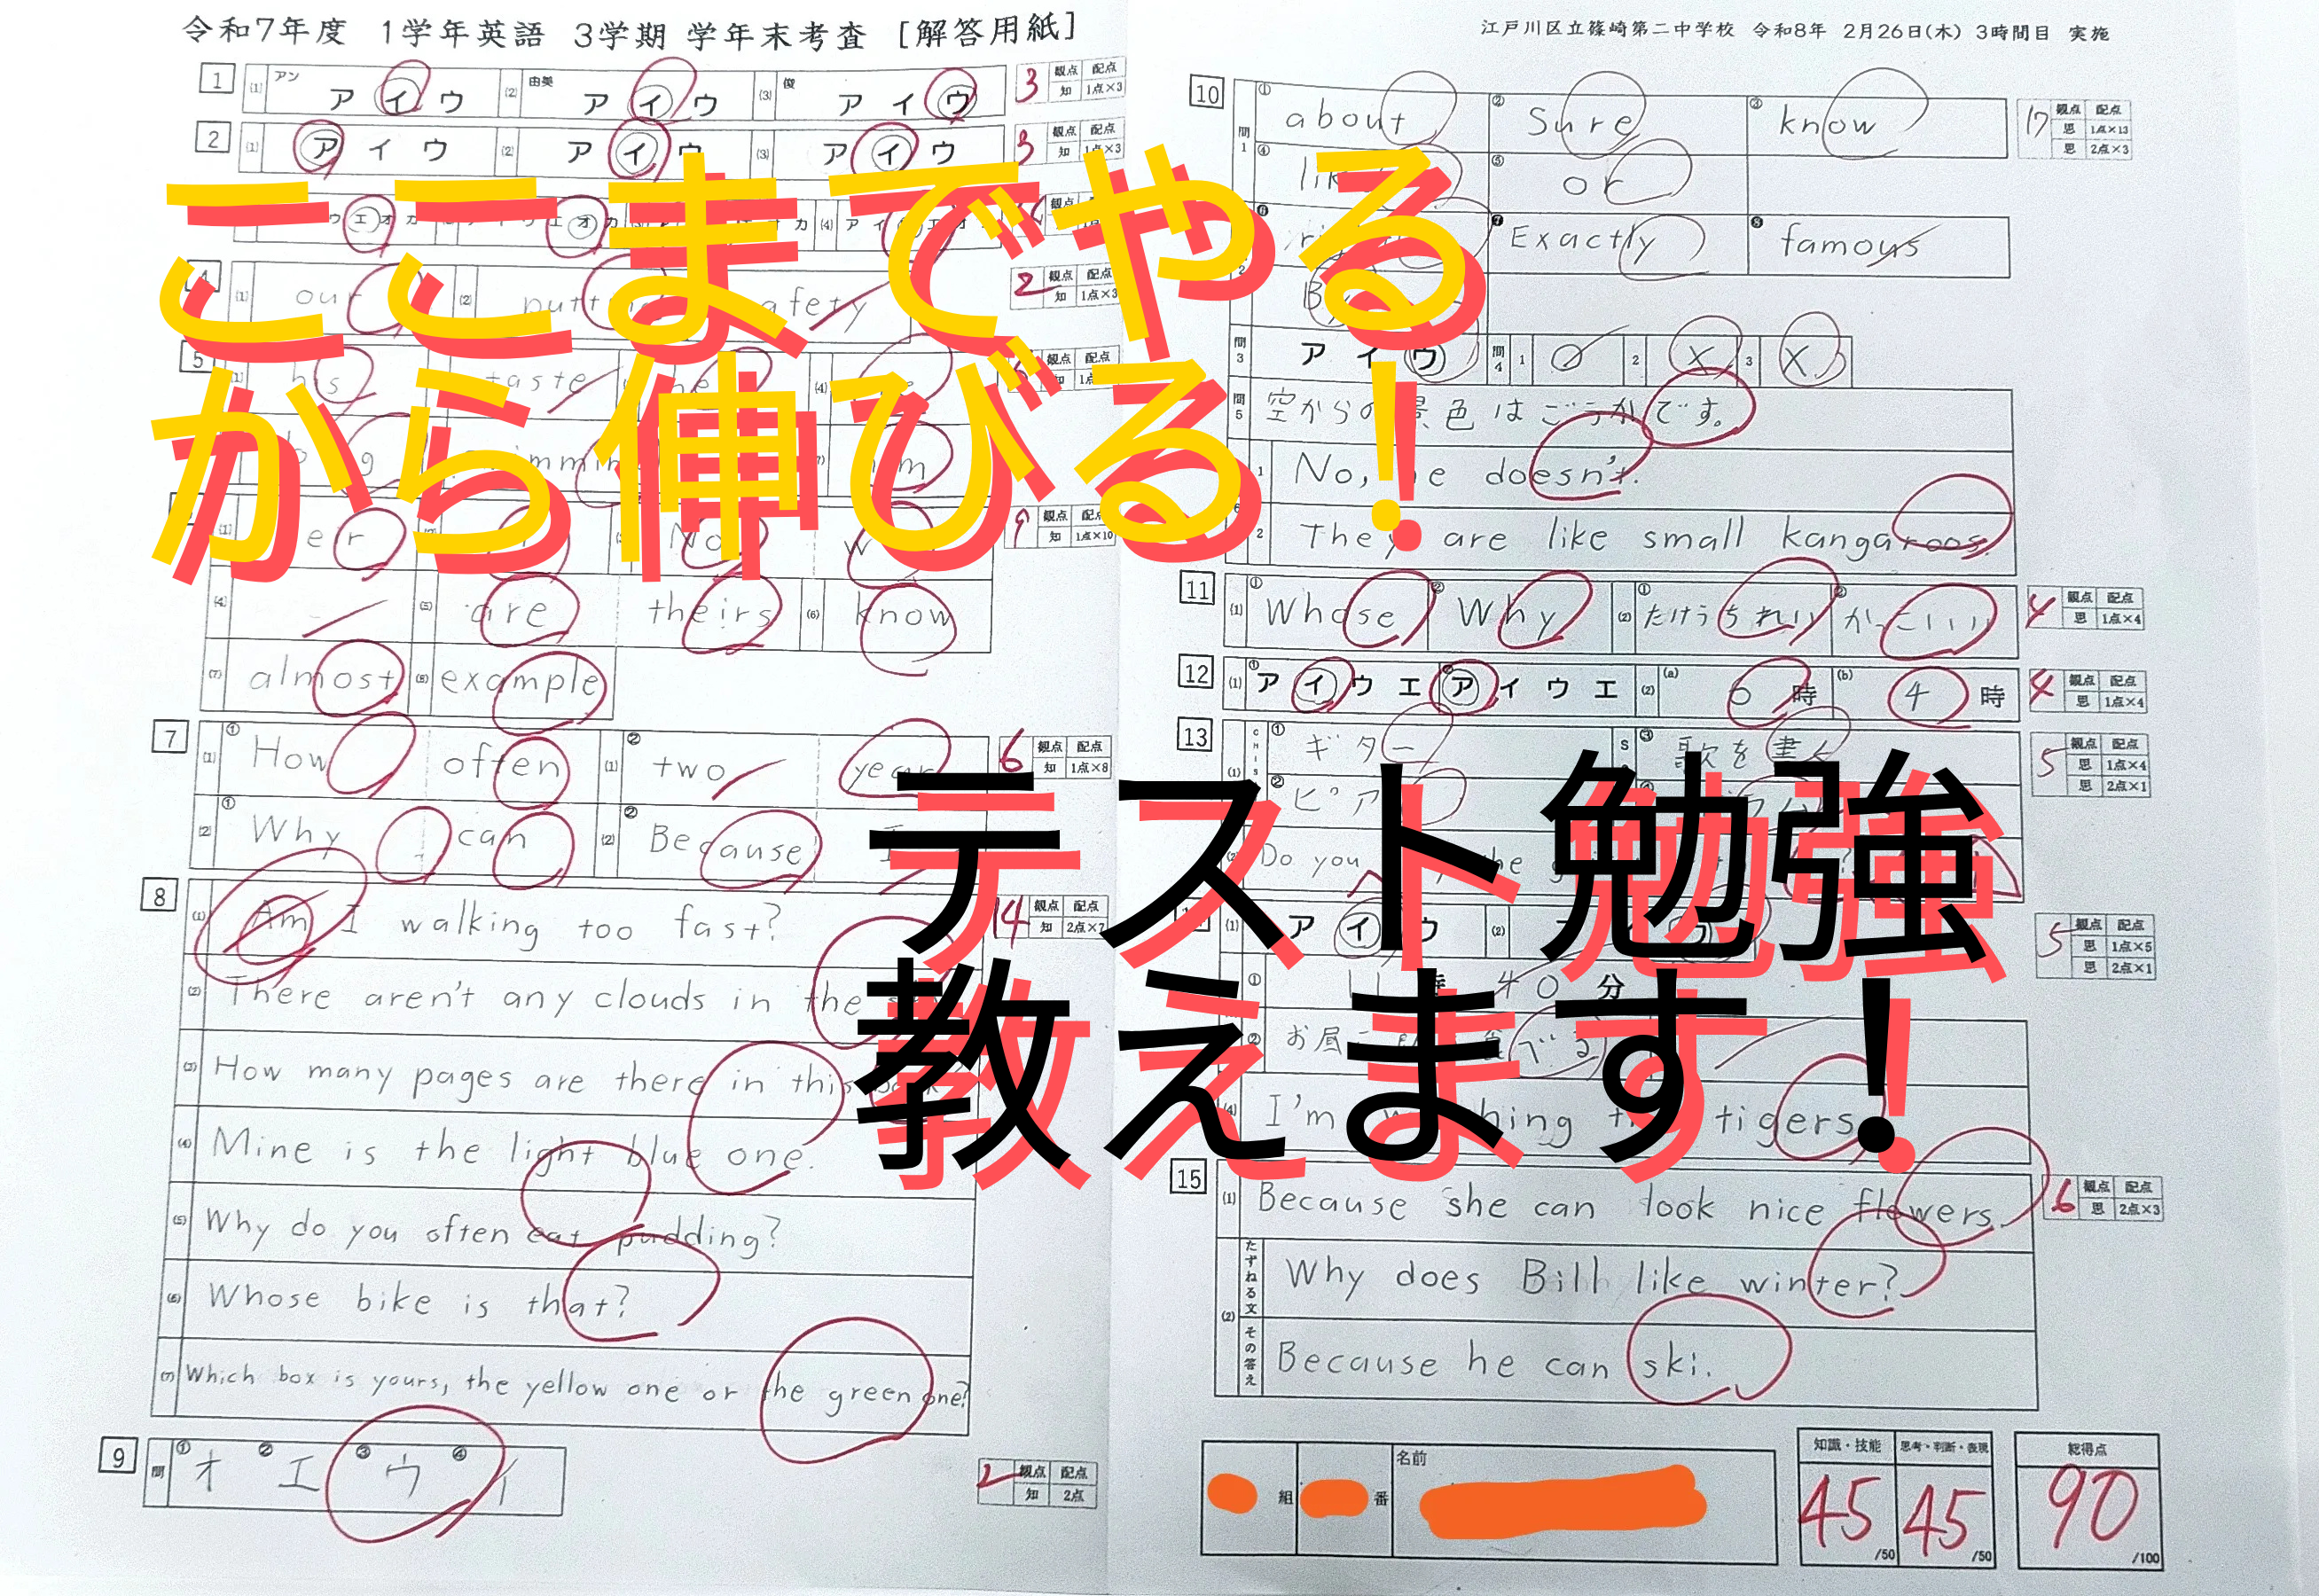 令和7年度 1学年英語 3学期 学年末考査 [解答用紙]
江戸川区立篠崎第二中学校 令和8年 2月26日(木) 3時間目 実施
ここまでやる
から伸びる!
テスト勉強
教えます!
1 (1) アン ア イ ウ (2) 由美 ア イ ウ (3) 俊 ア イ ウ 3 観点 配点 知 1点×3
2 (1) ア イ ウ (2) ア イ ウ (3) ア イ ウ 3 観点 配点 知 1点×3
(1) our (2) 2 観点 配点 知 1点×3
5 his taste (4)
(4) (5) are theirs (6) know 9 観点 配点 知 1点×10
(7) almost (8) example
7 (1) ① How often (1) ② two year 6 観点 配点 知 1点×8
(2) ① Why can (2) ② Because I
8 (1) Am I walking too fast? 14 観点 配点 知 2点×7
(2) There aren't any clouds in the
(3) How many pages are there in this
(4) Mine is the light blue one.
(5) Why do you often eat pudding?
(6) Whose bike is that?
(7) Which box is yours, the yellow one or the green one?
9 問 ① オ ② エ ③ ウ ④ イ 2 観点 配点 知 2点
10 問1 ① about ② Sure ③ know 17 観点 配点 思 1点×13 思 2点×3
④ ⑤ or
⑥ ⑦ Exactly ⑧ famous
問3 ア イ ウ 問4 1 2 × 3 ×
問5 空からの景色はごうかです。
1 No, he doesn't.
2 They are like small kangaroos.
11 (1) ① Whose ② Why (2) ① たけうちれい ② かっこいい 4 観点 配点 思 1点×4
12 (1) ① ア イ ウ エ ② ア イ ウ エ (2) (a) 6 時 (b) 4 時 4 観点 配点 思 1点×4
13 (1) ① ギター ③ 歌を書く 5 観点 配点 思 1点×4 思 2点×1
② ピア
(2) Do you
(1) ア イ ウ (2) 5 観点 配点 思 1点×5 思 2点×1
① 11 40 分
② お昼
(4) I'm tigers.
15 (1) Because she can look nice flowers. 6 観点 配点 思 2点×3
(2) たずねる文 Why does Bill like winter?
その答え Because he can ski.
組 番 名前
知識・技能 45 /50 思考・判断・表現 45 /50 総得点 90 /100